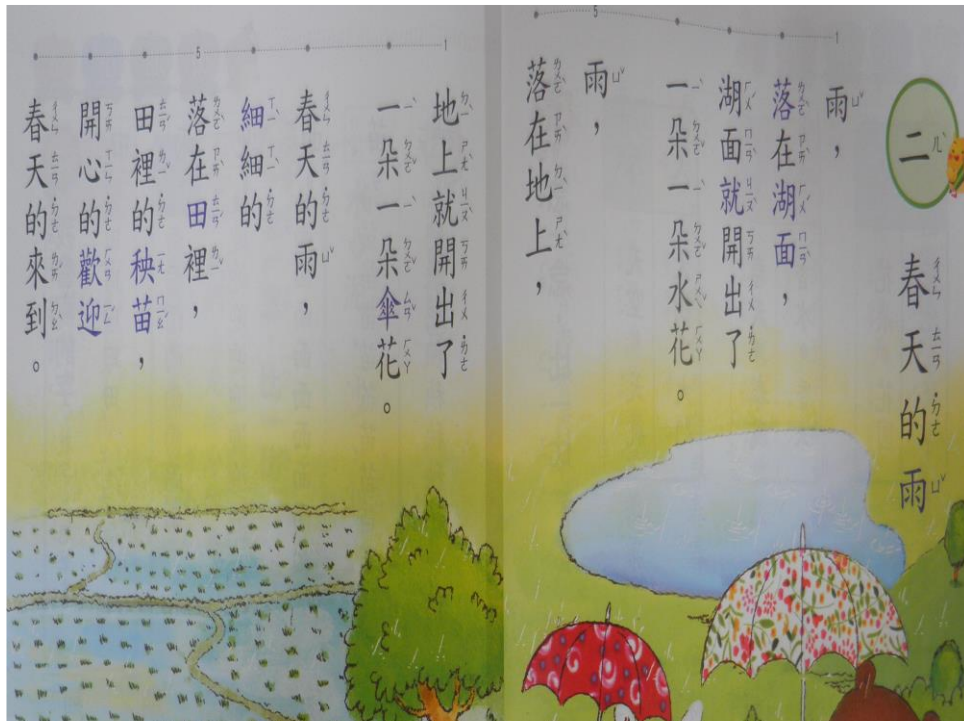 二 春天的雨
雨，
落在湖面，
湖面就開出了
一朵一朵水花。
雨，
落在地上，
地上就開出了
一朵一朵傘花。
春天的雨，
細細的
落在田裡，
田裡的秧苗，
開心的歡迎
春天的來到。